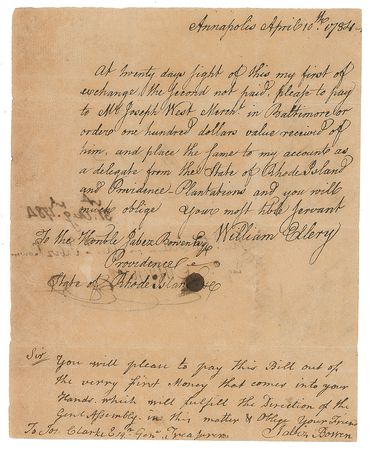 Annapolis April 10th. 1784
At twenty days sight of this my first of
exchange the second not paid, please to pay
to Mr. Joseph West Mercht. in Baltimore or
order one hundred dollars value received of
him, and place the same to my account as
a delegate from the State of Rhode Island
and Providence Plantations and you will
much oblige Your most hble Servant
William Ellery
To the Honble Jabez Bowen Esqr
Providence
State of Rhode Island &c
Sir You will please to pay this Bill out of
the verry first Money that comes into your
Hands. which will fulfill the Direction of the
Genl. Assembly in this matter & Oblige Your Friend
Jabez Bowen
To Jos. Clarke Esqr. Genl. Treasurer